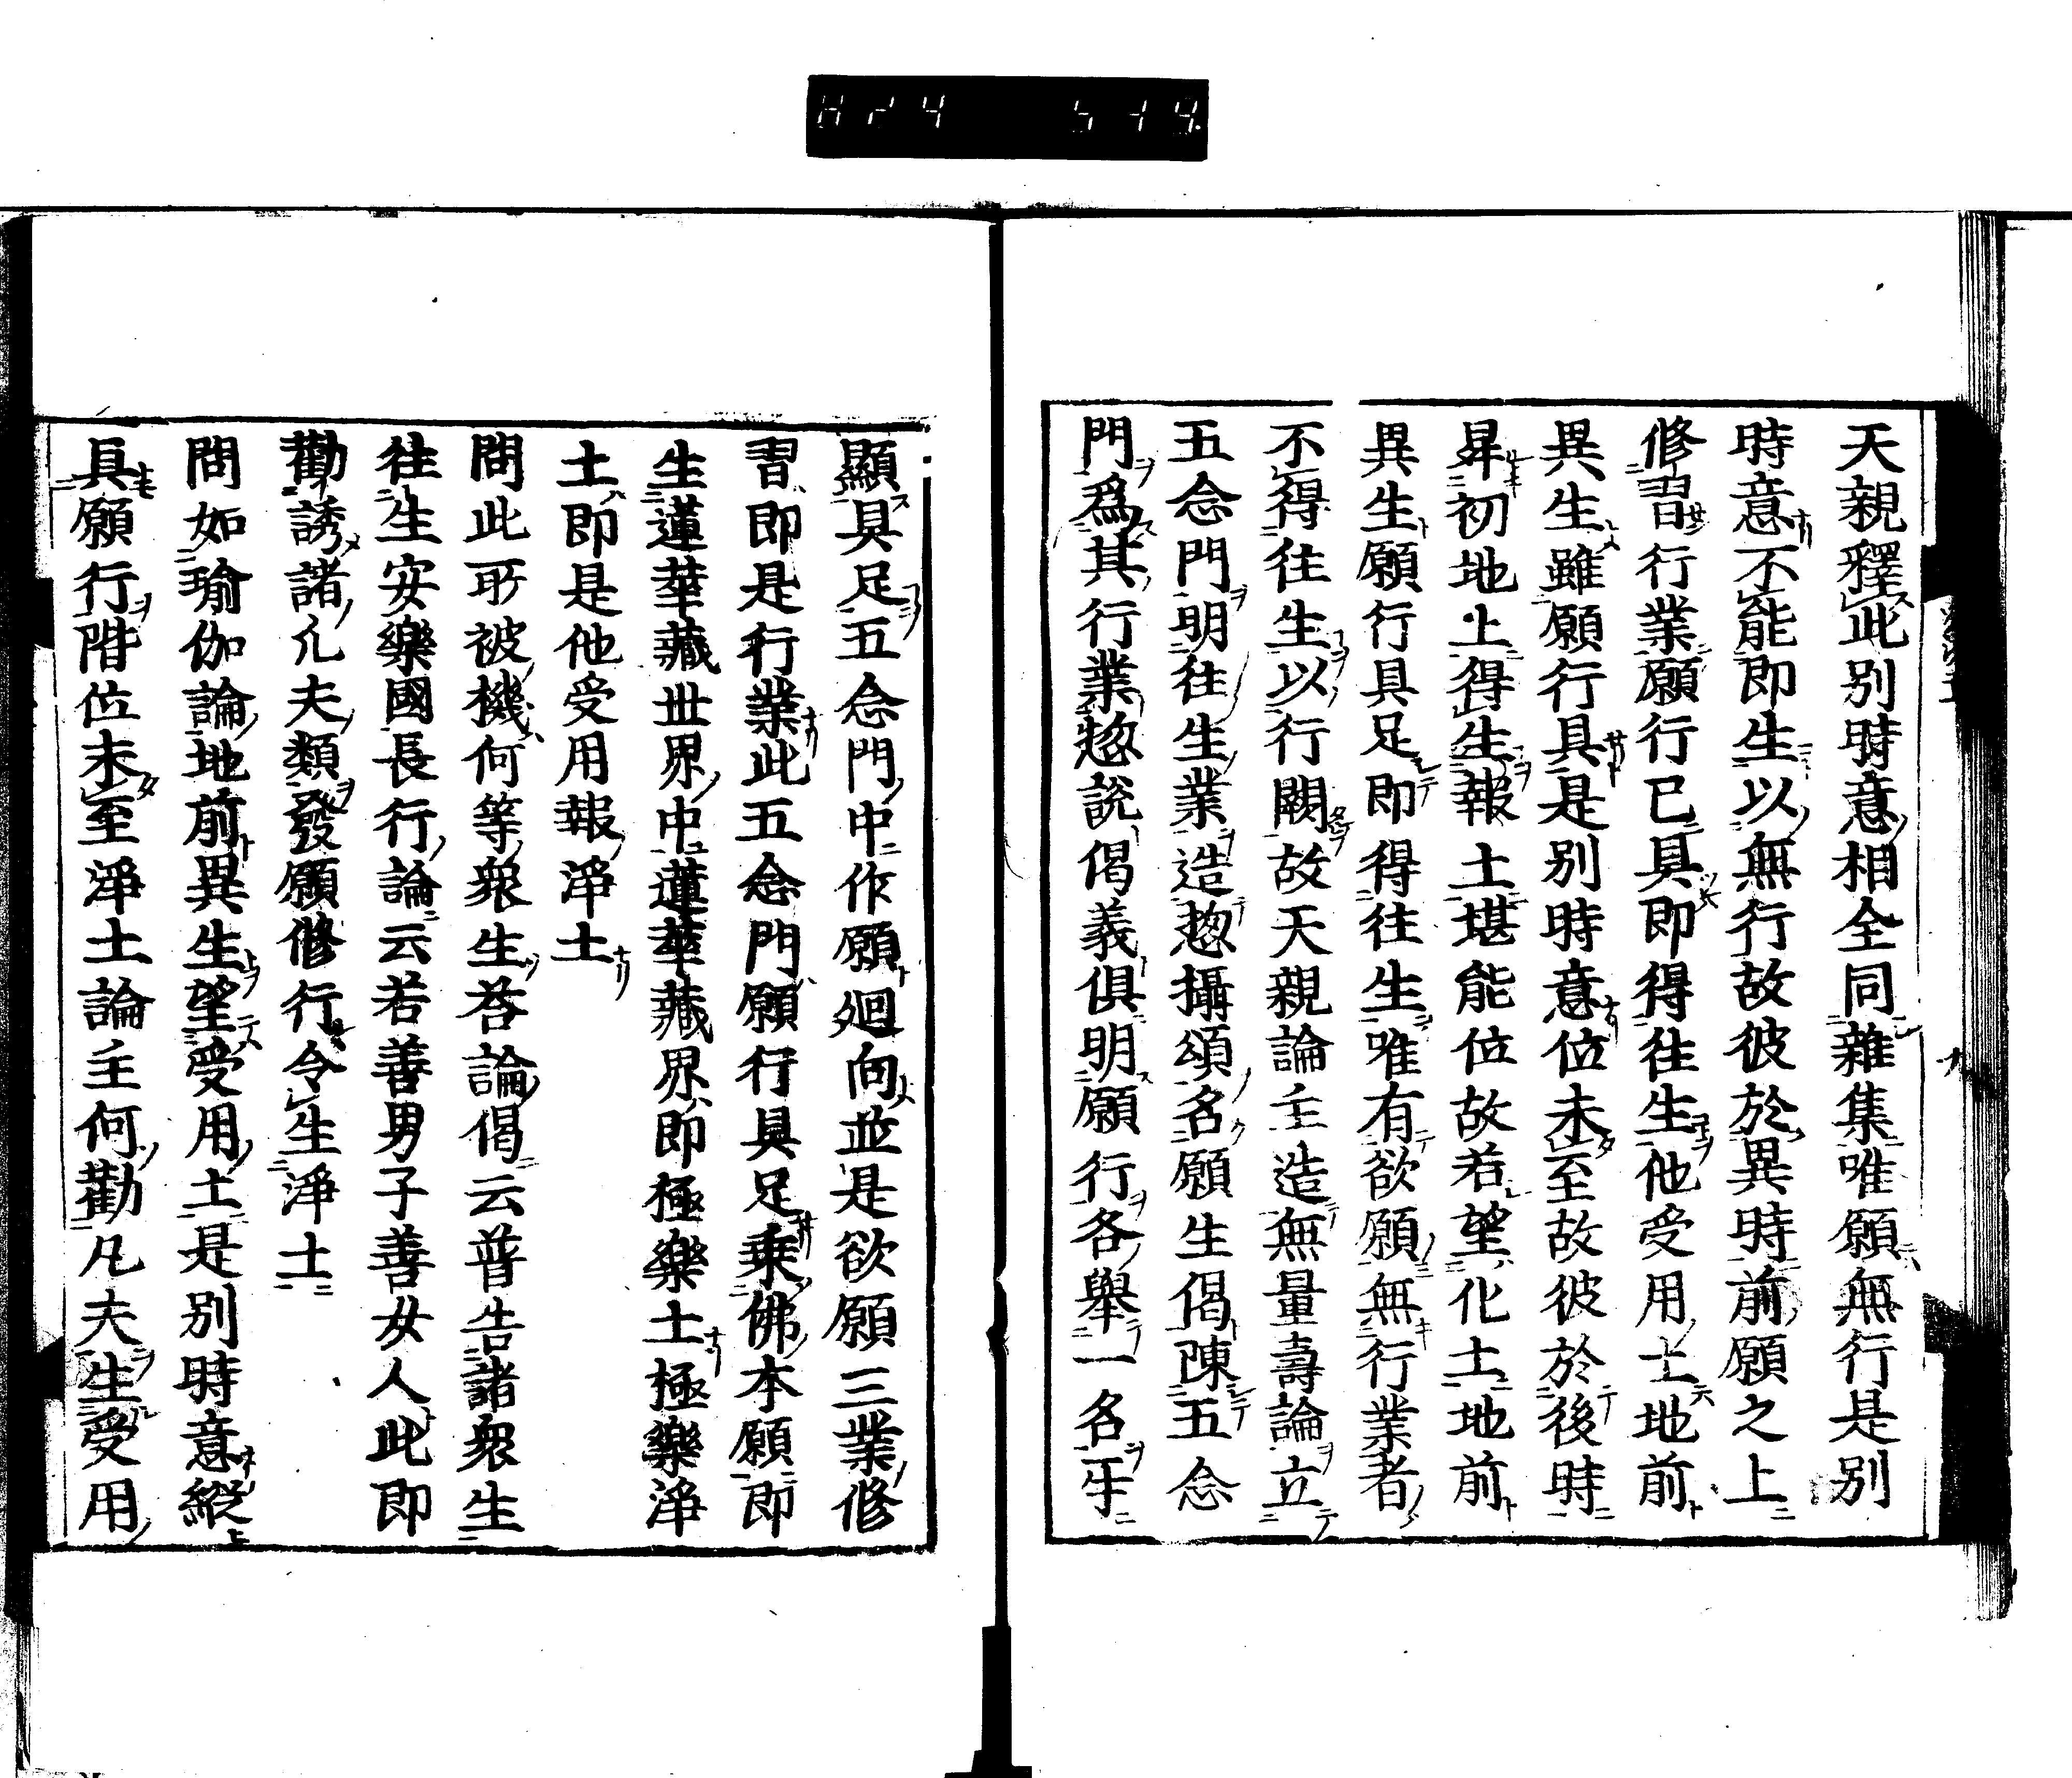 天親釋此別時意相全同雜集唯願無行是別
時意不能即生以無行故彼於異時前願之上
修習行業願行已具即得往生他受用土地前
異生雖願行具是別時意位未至故彼於後時
昇初地上得生報土堪能位故若望化土地前
異生願行具足即得往生唯有欲願無行業者
不得往生以行闕故天親論主造無量壽論立
五念門明往生業造惣攝頌名願生偈陳五念
門爲其行業惣說偈義俱明願行各舉一名乎
顯具足五念門中作願廻向並是欲願三業修
習即是行業此五念門願行具足乗佛本願即
生蓮華藏世界中蓮華藏界即極樂土極樂淨
土即是他受用報淨土
問此所被機何等衆生答論偈云普告諸衆生
往生安樂國長行論云若善男子善女人此即
勸誘諸凡夫類發願修行令生淨土
問如瑜伽論地前異生望受用土是別時意縱
具願行階位未至淨土論主何勸凡夫生受用